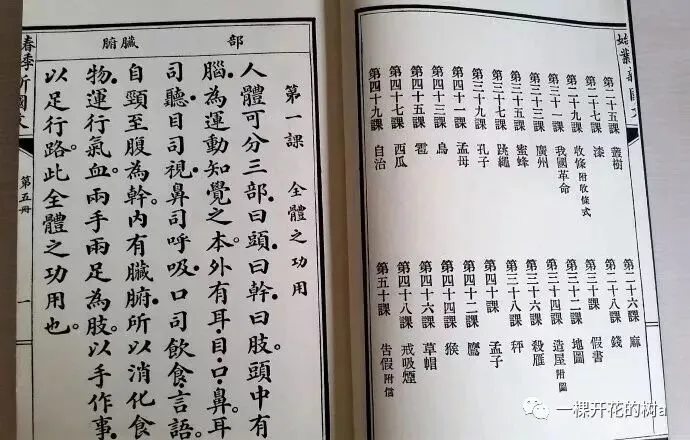 第二十五課 叢樹
第二十六課 麻
第二十七課 漆
第二十八課 錢
第二十九課 收條 附收條式
第三十課 假書
第三十一課 我國革命
第三十二課 地圖
第三十三課 廣州
第三十四課 造屋 附圖
第三十五課 蜜蜂
第三十六課 殺雁
第三十七課 跳繩
第三十八課 秤
第三十九課 孔子
第四十課 孟子
第四十一課 孟母
第四十二課 鷹
第四十三課 鳥
第四十四課 猴
第四十五課 雹
第四十六課 草帽
第四十七課 西瓜
第四十八課 戒吸煙
第四十九課 自治
第五十課 告假 附信
部 臟腑
第一課 全體之功用
人體可分三部。曰頭。曰幹。曰肢。頭中有
腦。為運動知覺之本。外有耳目口鼻。耳
司聽。目司視。鼻司呼吸。口司飲食言語。
自頸至腹為幹。內有臟腑。所以消化食
物。運行氣血。兩手兩足為肢。以手作事。
以足行路。此全體之功用也。
春季新國文
第五冊
一
一棵开花的树a